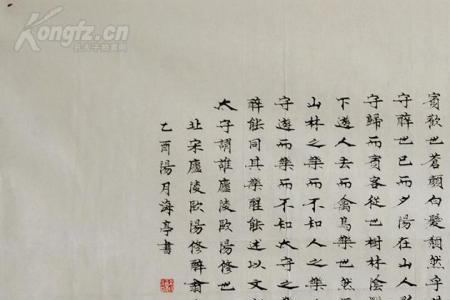 Kongfz.cn
賓歡也蒼顏白髮頹然乎
守醉也已而夕陽在山人
守歸而賓客從也樹林陰
下遊人去而禽鳥樂也然
山林之樂而不知人之樂
守遊而樂而不知太守之
醉能同其樂醒能述以文
太守謂誰廬陵歐陽修也
北宋廬陵歐陽修醉翁
乙酉陽月海亭書